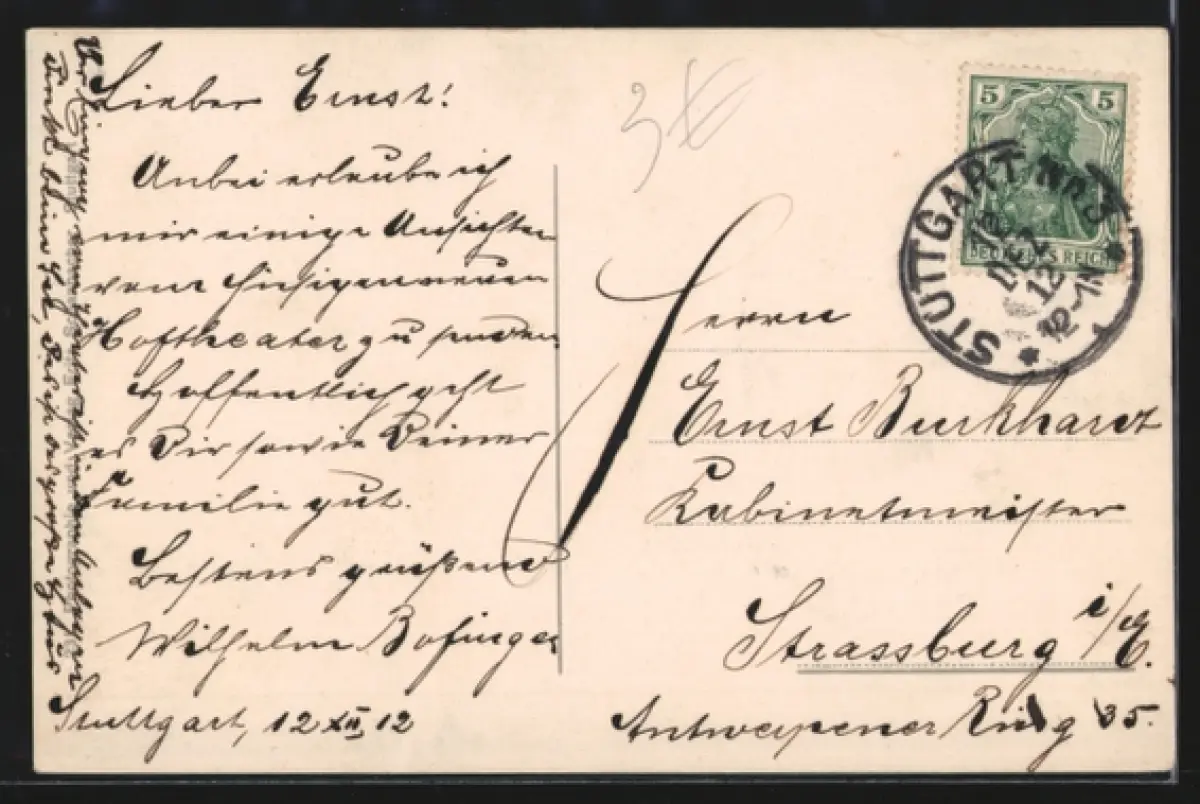 Lieber Ernst!
Anbei erlaube ich
mir einige Ansichten
vom hiesigen neuen
Hoftheater zu senden
Hoffentlich geht
es Dir sowie Deiner
Familie gut.
Bestens grüßend
Wilhelm Bofinger
Stuttgart, 12 XII, 12
5 5
DEUTSCHES REICH
STUTTGART NR. 3
12
DEZ
12
12-1N
Herrn
Ernst Burkhardt
Kabinetmeister
Strassburg i/E.
Antwerpener Ring 35.